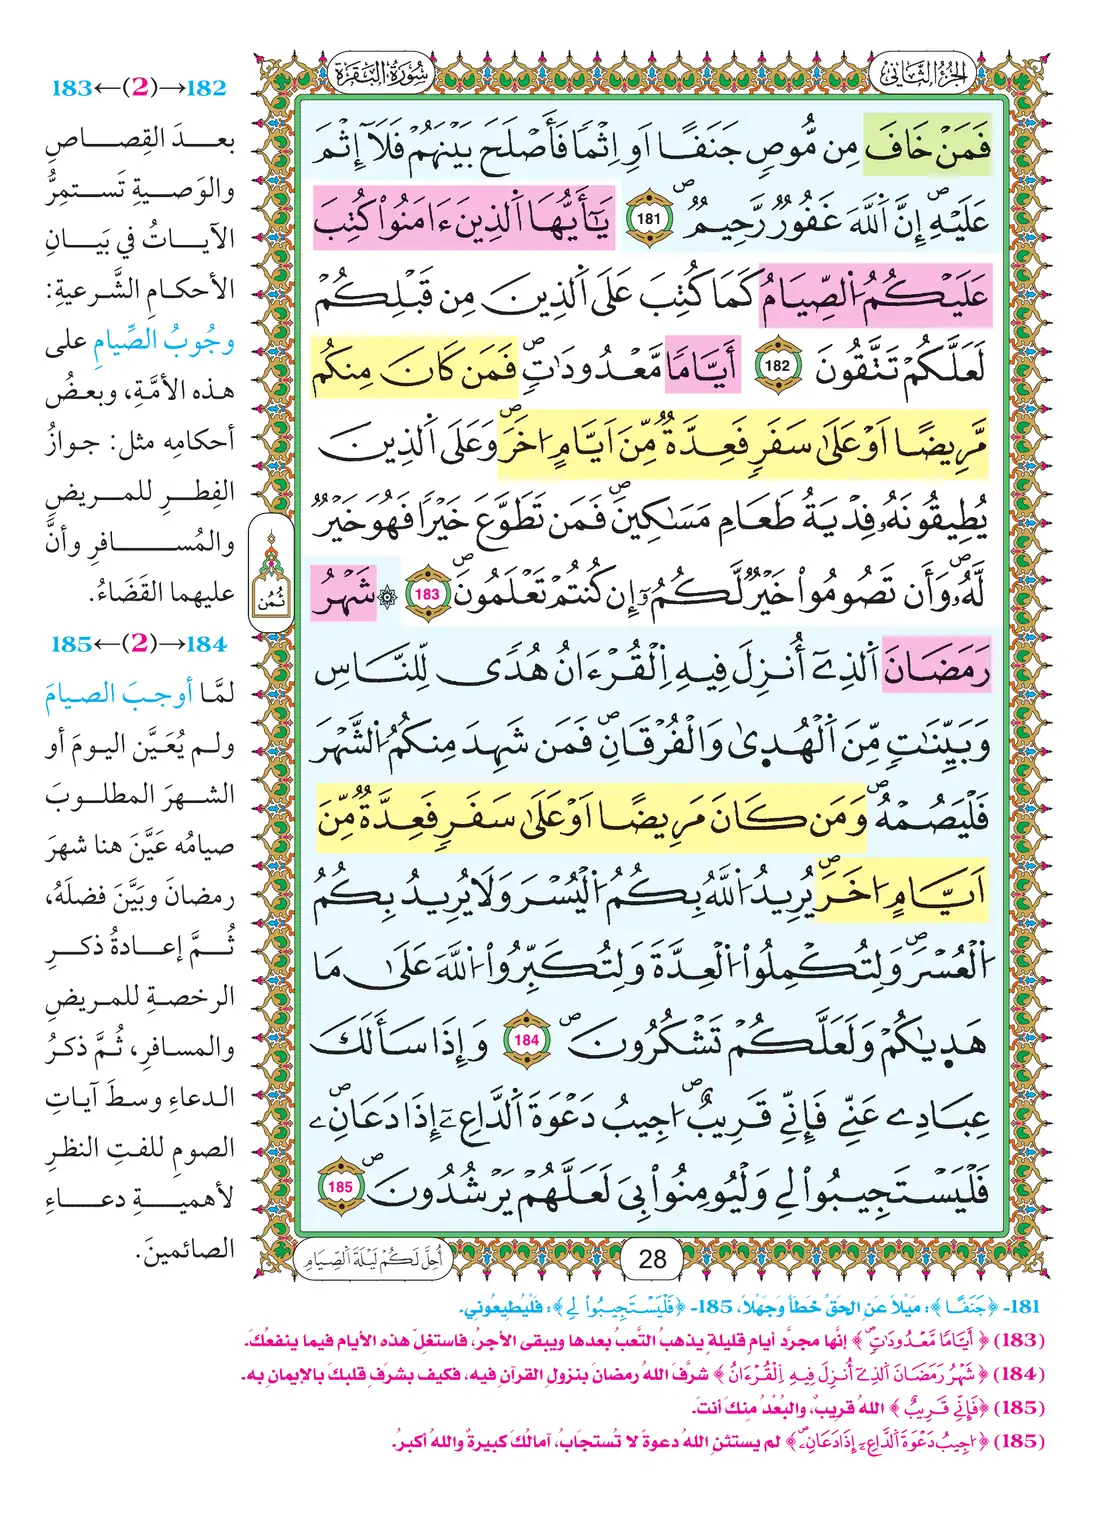 الجزء الثاني
سورة البقرة
فَمَنْ خَافَ مِن مُّوصٖ جَنَفًا اَوِ اِثْمًا فَأَصْلَحَ بَيْنَهُمْ فَلَآ إِثْمَ
عَلَيْهِۖ إِنَّ اَ۬للَّهَ غَفُورٞ رَّحِيمٞۖ 181 يَٰٓأَيُّهَا اَ۬لذِينَ ءَامَنُواْ كُتِبَ
عَلَيْكُمُ اُ۬لصِّيَامُ كَمَا كُتِبَ عَلَى اَ۬لذِينَ مِن قَبْلِكُمْ
لَعَلَّكُمْ تَتَّقُونَ 182 أَيَّامٗا مَّعْدُودَٰتٖۖ فَمَن كَانَ مِنكُم
مَّرِيضًا اَوْ عَلَىٰ سَفَرٖ فَعِدَّةٞ مِّنَ اَيَّامٍ اُخَرَۖ وَعَلَى اَ۬لذِينَ
يُطِيقُونَهُۥ فِدْيَةُ طَعَامِ مَسَٰكِينَۖ فَمَن تَطَوَّعَ خَيْرٗا فَهُوَ خَيْرٞ
لَّهُۥۖ وَأَن تَصُومُواْ خَيْرٞ لَّكُمُۥٓ إِن كُنتُمْ تَعْلَمُونَۖ 183 ۞ شَهْرُ
رَمَضَانَ اَ۬لذِےٓ أُنزِلَ فِيهِ اِ۬لْقُرْءَانُ هُدٗى لِّلنَّاسِ
وَبَيِّنَٰتٖ مِّنَ اَ۬لْهُدَىٰ وَالْفُرْقَانِۖ فَمَن شَهِدَ مِنكُمُ اُ۬لشَّهْرَ
فَلْيَصُمْهُۖ وَمَن كَانَ مَرِيضًا اَوْ عَلَىٰ سَفَرٖ فَعِدَّةٞ مِّنَ
اَيَّامٍ اُخَرَۖ يُرِيدُ اُ۬للَّهُ بِكُمُ اُ۬لْيُسْرَ وَلَا يُرِيدُ بِكُمُ
اُ۬لْعُسْرَۖ وَلِتُكْمِلُواْ اُ۬لْعِدَّةَ وَلِتُكَبِّرُواْ اُ۬للَّهَ عَلَىٰ مَا
هَد۪يٰكُمْ وَلَعَلَّكُمْ تَشْكُرُونَۖ 184 وَإِذَا سَأَلَكَ
عِبَادِے عَنِّے فَإِنِّے قَرِيبٌۖ اُجِيبُ دَعْوَةَ اَ۬لدَّاعِۦٓ إِذَا دَعَانِۦۖ
فَلْيَسْتَجِيبُواْ لِے وَلْيُومِنُواْ بِے لَعَلَّهُمْ يَرْشُدُونَۖ 185
ثُمُن
28
أُحِلَّ لَكُمْ لَيْلَةَ اَ۬لصِّيَامِ
182→(2)←183
بعدَ القِصاصِ
والوَصيةِ تَستمِرُّ
الآياتُ في بَيانِ
الأحكامِ الشَّرعيةِ:
وجُوبُ الصِّيامِ على
هذه الأمَّةِ، وبعضُ
أحكامِه مثل: جوازُ
الفِطرِ للمريضِ
والمُسافرِ وأنَّ
عليهما القَضَاءُ.
184→(2)←185
لمَّا أوجبَ الصيامَ
ولم يُعَيَّن اليومَ أو
الشهرَ المطلوبَ
صيامُه عَيَّنَ هنا شهرَ
رمضانَ وبَيَّنَ فضلَهُ،
ثُمَّ إعادةُ ذكرِ
الرخصةِ للمريضِ
والمسافرِ، ثُمَّ ذكرُ
الدعاءِ وسطَ آياتِ
الصومِ للفتِ النظرِ
لأهميةِ دعاءِ
الصائمينَ.
181- ﴿جَنَفًا﴾: مَيْلاً عَنِ الحَقِّ خَطَأً وَجَهْلاً، 185- ﴿فَلْيَسْتَجِيبُواْ لِے﴾: فَلْيُطِيعُونِي.
(183) ﴿أَيَّامٗا مَّعْدُودَٰتٖۖ﴾ إنَّها مجرَّد أيامٍ قليلةٍ يذهبُ التَّعبُ بعدها ويبقى الأجرُ، فاستغلَّ هذه الأيام فيما ينفعُكَ.
(184) ﴿شَهْرُ رَمَضَانَ اَ۬لذِےٓ أُنزِلَ فِيهِ اِ۬لْقُرْءَانُ﴾ شرَّفَ اللهُ رمضانَ بنزولِ القرآنِ فيه، فكيف بشرفِ قلبكَ بالإيمانِ به.
(185) ﴿فَإِنِّے قَرِيبٌ﴾ اللهُ قريبٌ، والبُعْدُ منكَ أنتَ.
(185) ﴿اُجِيبُ دَعْوَةَ اَ۬لدَّاعِۦٓ إِذَا دَعَانِۦۖ﴾ لم يستثنِ اللهُ دعوةً لا تُستجابُ، آمالُكَ كبيرةٌ واللهُ أكبرُ.